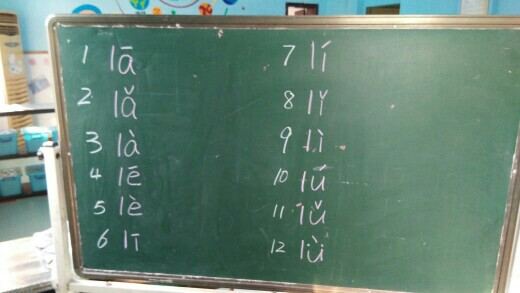 1 lā
2 lǎ
3 là
4 lē
5 lè
6 lī
7 lí
8 lǐ
9 lì
10 lú
11 lǔ
12 lù